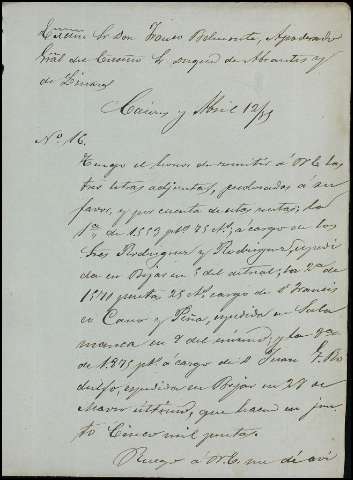 Exmo. Sr Don Franco Belmonte, Apoderado
Gral del Excmo Sr Duque de Abrantes y
de Linares
Cáceres y Abril 12/85
No. 16.
Tengo el honor de remitir á V.E. las
tres letras adjuntas, endosadas á su
favor, y por cuenta de estas rentas: la
1a de 1553 pts 75 cts, a cargo de los
Sres Rodriguez y Rodriguez, espedi
da en Bejar en 5 del actual; la 2a de
1571 pesetas 25 cts, cargo de
Cano y Peña, espedida en Sala
manca en 8 del mismo, y la 3a
de 1.875 pts á cargo de D. Juan F. Ro
dulfo, espedida en Bejar en 28 de
Marzo último, que hacen en jun
to Cinco mil pesetas.
Ruego á V.E. me dé avi